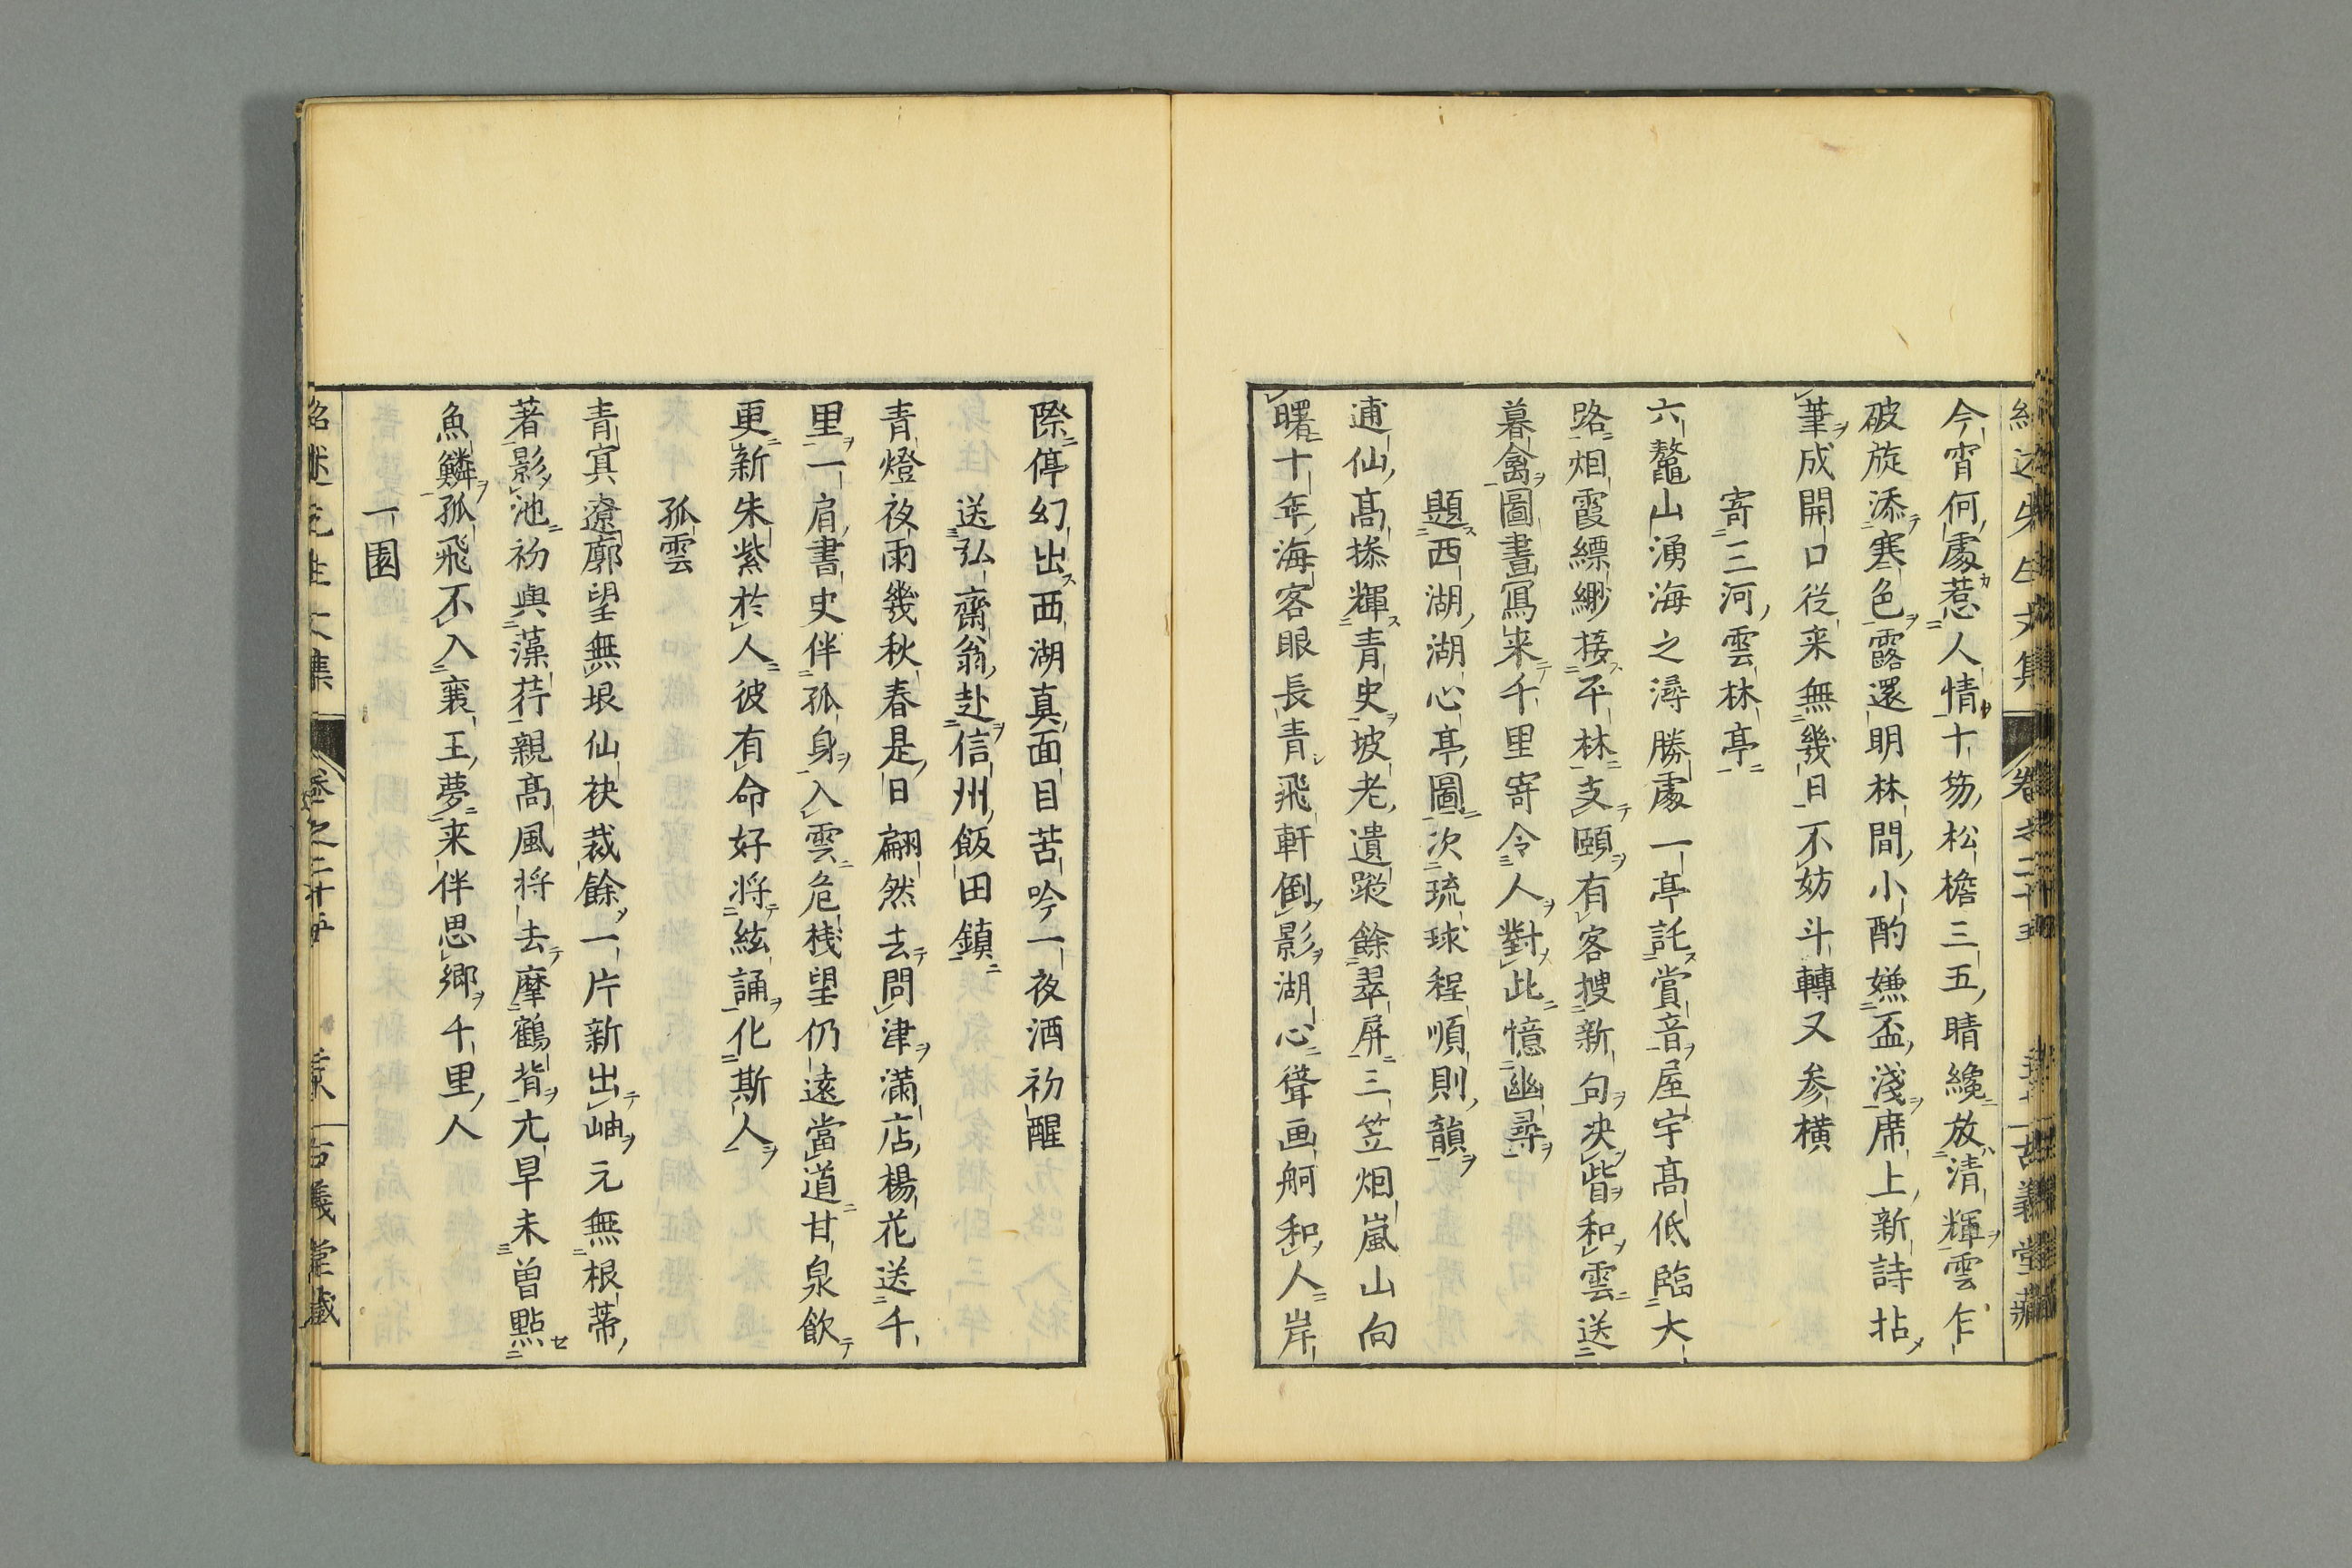 今宵何處惹人情十笏松檐三五晴纔放清輝雲乍
破旋添寒色露還明林間小酌嫌盃淺席上新詩拈
筆成開口從来無幾日不妨斗轉又参横
寄三河雲林亭
六鼇山湧海之潯勝處一亭託賞音屋宇髙低臨大
路烟霞縹緲接平林支頤有客搜新句决眥和雲送
暮禽圖畫寫来千里寄令人對此憶幽尋
題西湖湖心亭圖次琉球程順則韻
逋仙髙搽輝青史坡老遺蹤餘翠屏三竺烟嵐山向
曙十年海客眼長青飛軒倒影湖心聳画舸和人岸
際停幻出西湖真面目苦吟一夜酒初醒
送弘齋翁赴信州飯田鎮
青燈夜雨幾秋春是日翩然去問津滿店楊花送千
里一肩書史伴孤身入雲危棧望仍遠當道甘泉飲
更新朱紫於人彼有命好將絃誦化斯人
孤雲
青冥遼廓望無垠仙袂裁餘一片新出岫元無根蒂
著影池初與藻荇親髙風将去摩鶴背亢旱未曽點
魚鱗孤飛不入襄王夢来伴思鄉千里人
一園
紹述先生文集 卷之二十五 古義堂藏